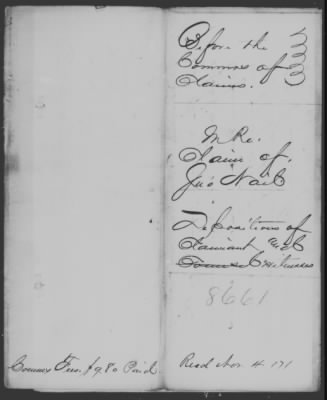 Before the
Commrs of
Claims.
In Re.
Claim of.
Jno Nail
Depositions of
Claimant and
Witnesses
8661
Commrs Fees, $9.80 Paid
Recd Nov. 4. 171